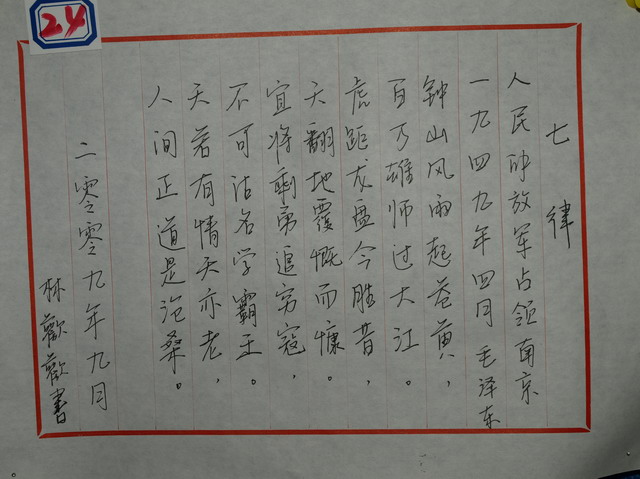 24
七律
人民解放军占领南京
一九四九年四月 毛泽东
钟山风雨起苍黄，
百万雄师过大江。
虎距龙盘今胜昔，
天翻地覆慨而慷。
宜将剩勇追穷寇，
不可沽名学霸王。
天若有情天亦老，
人间正道是沧桑。
二零零九年九月
林歡歡書